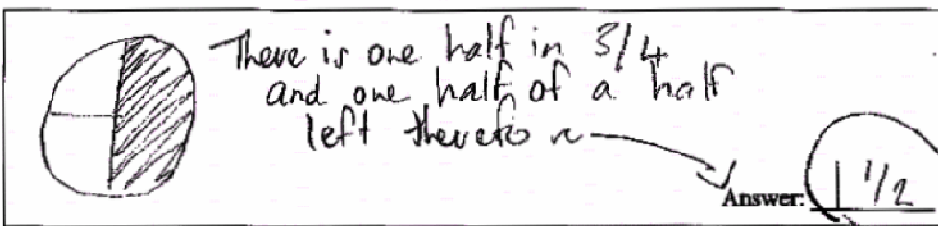 There is one half in 3/4
and one half of a half
left therefore
Answer: 1 1/2